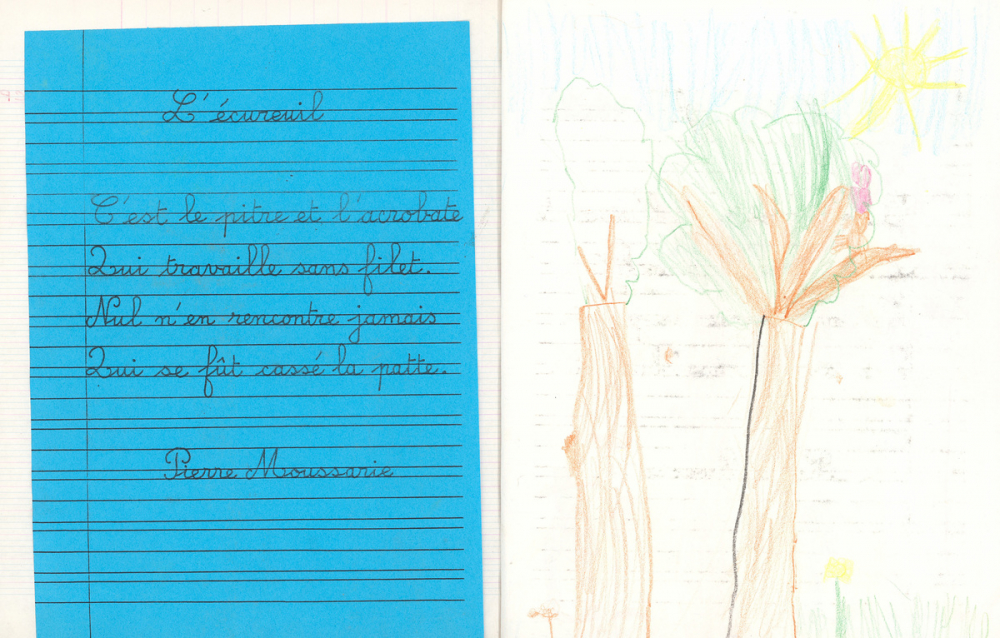 L'écureuil
C'est le pitre et l'acrobate
Qui travaille sans filet.
Nul n'en rencontre jamais
Qui se fût cassé la patte.
Pierre Moussarie